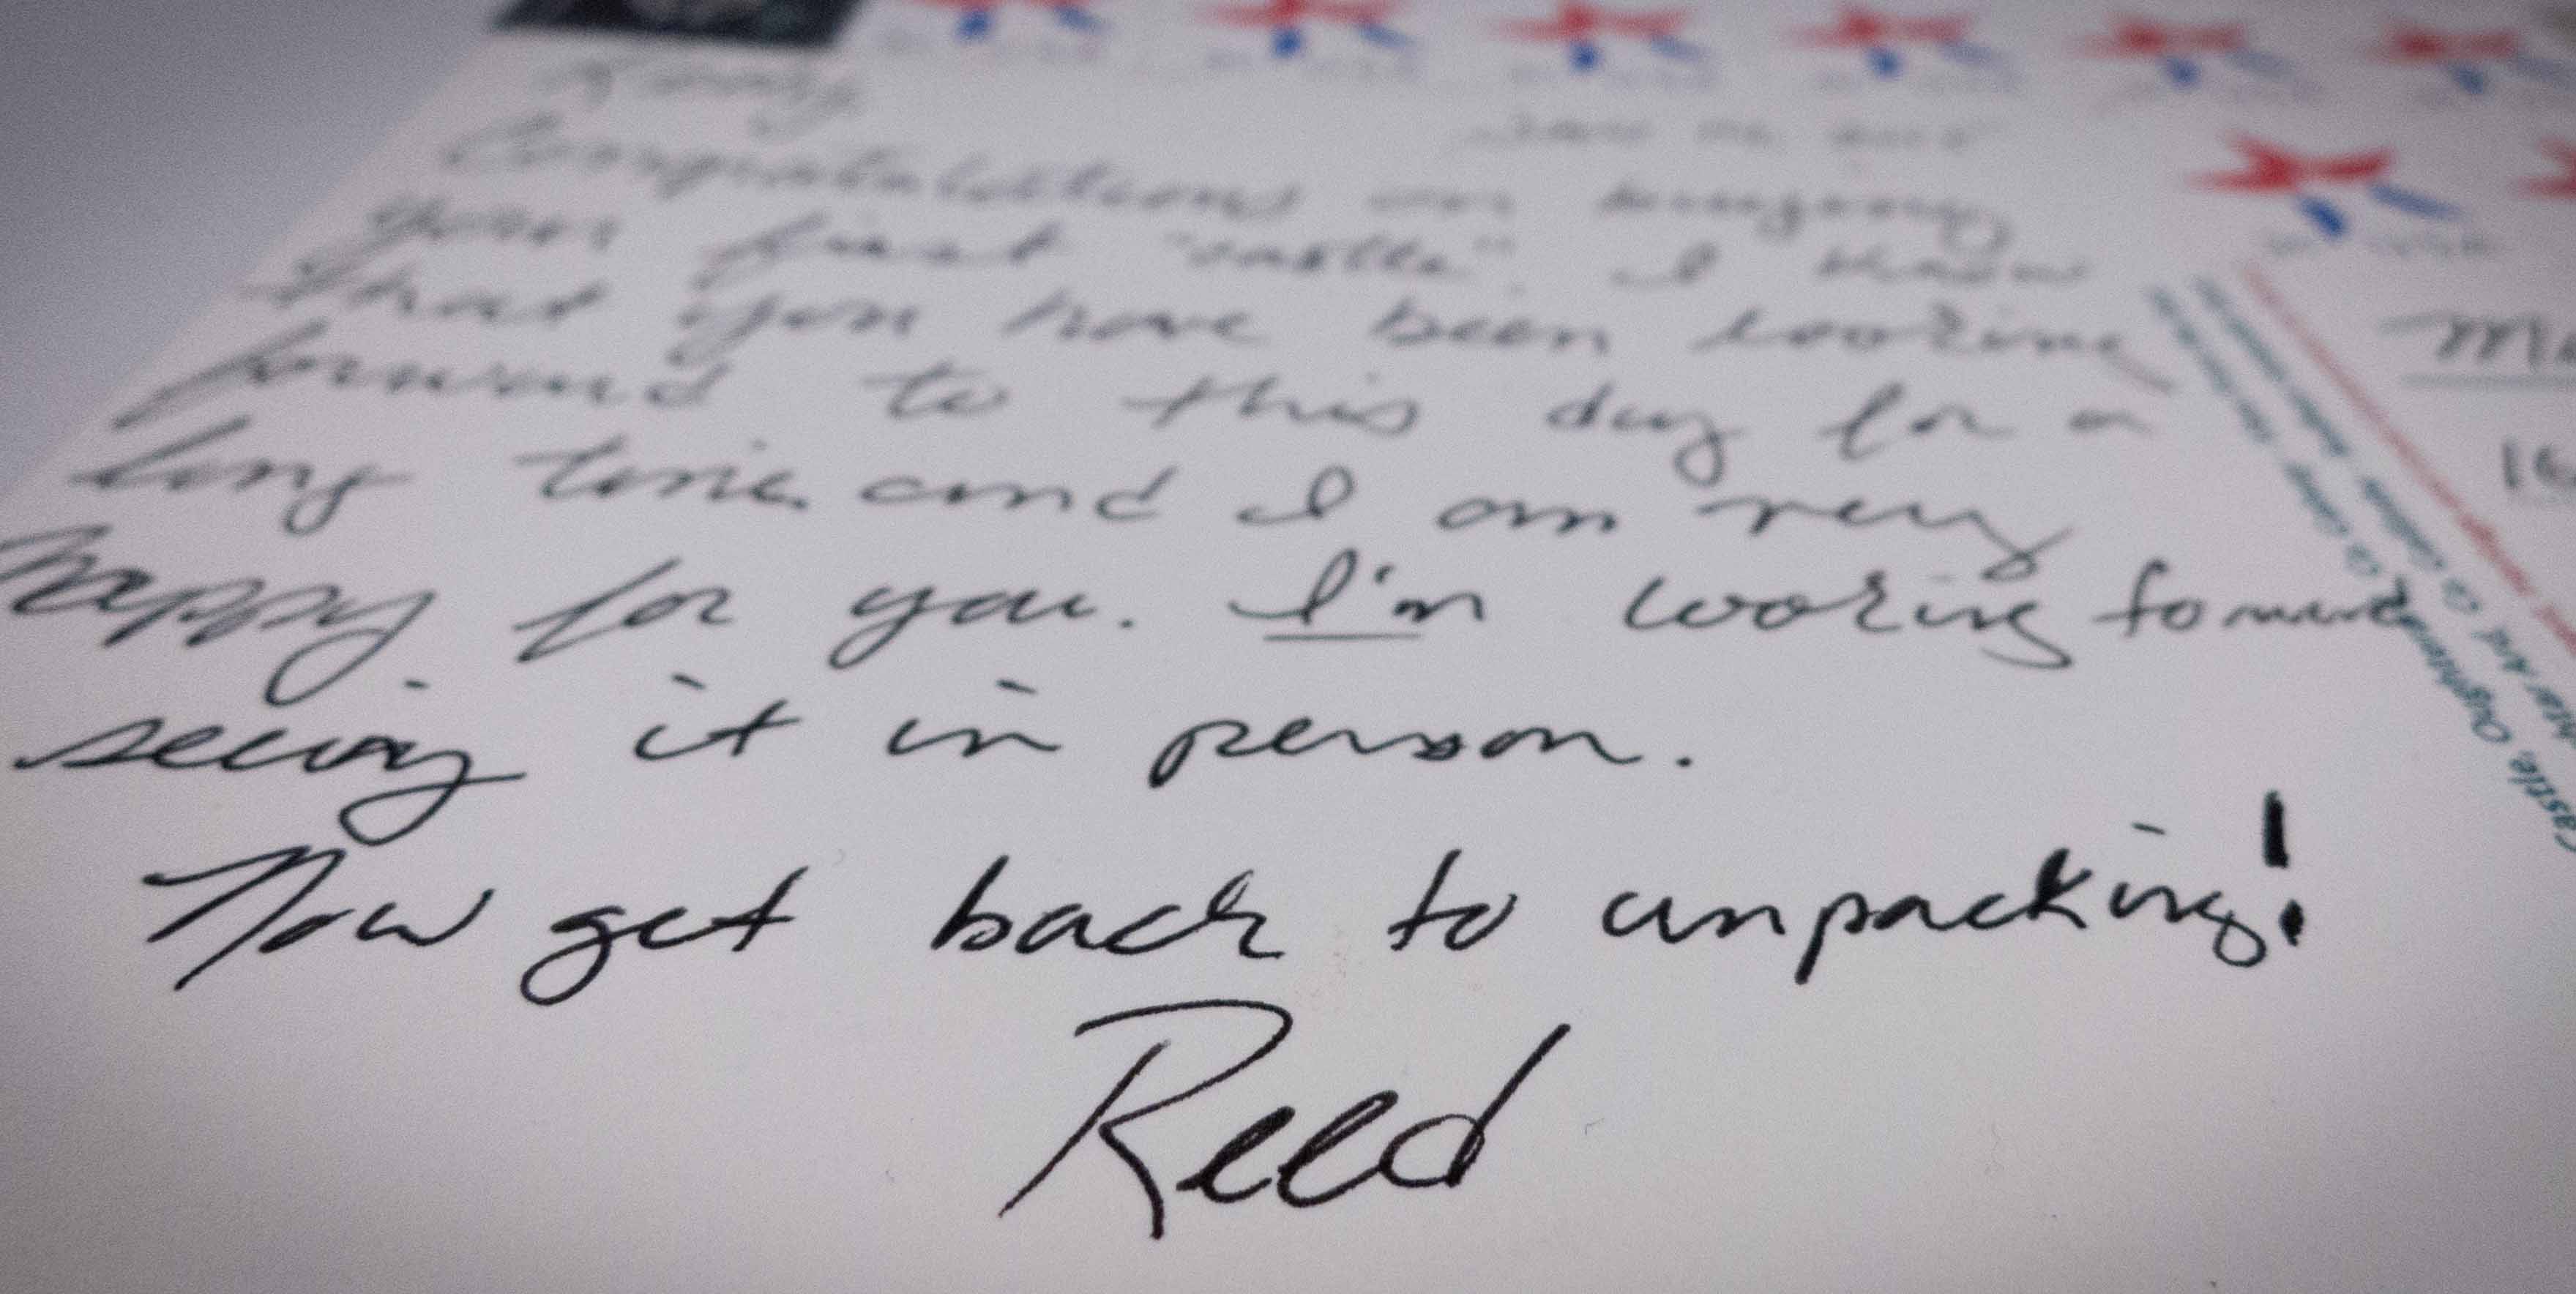 Congratulations on buying
your first "castle". I know
that you have been looking
forward to this day for a
long time and I am very
happy for you. I'm looking forward
seeing it in person.
Now get back to unpacking!
Reed